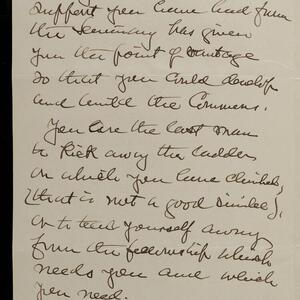 support you have had from
the Seminary has given
you the point of vantage
so that you could develop
and build the Commons.
You are the last man
to kick away the ladders
on which you have climbed,
(that is not a good simile),
or to tear yourself away
from the fellowship which
needs you and which
you need.